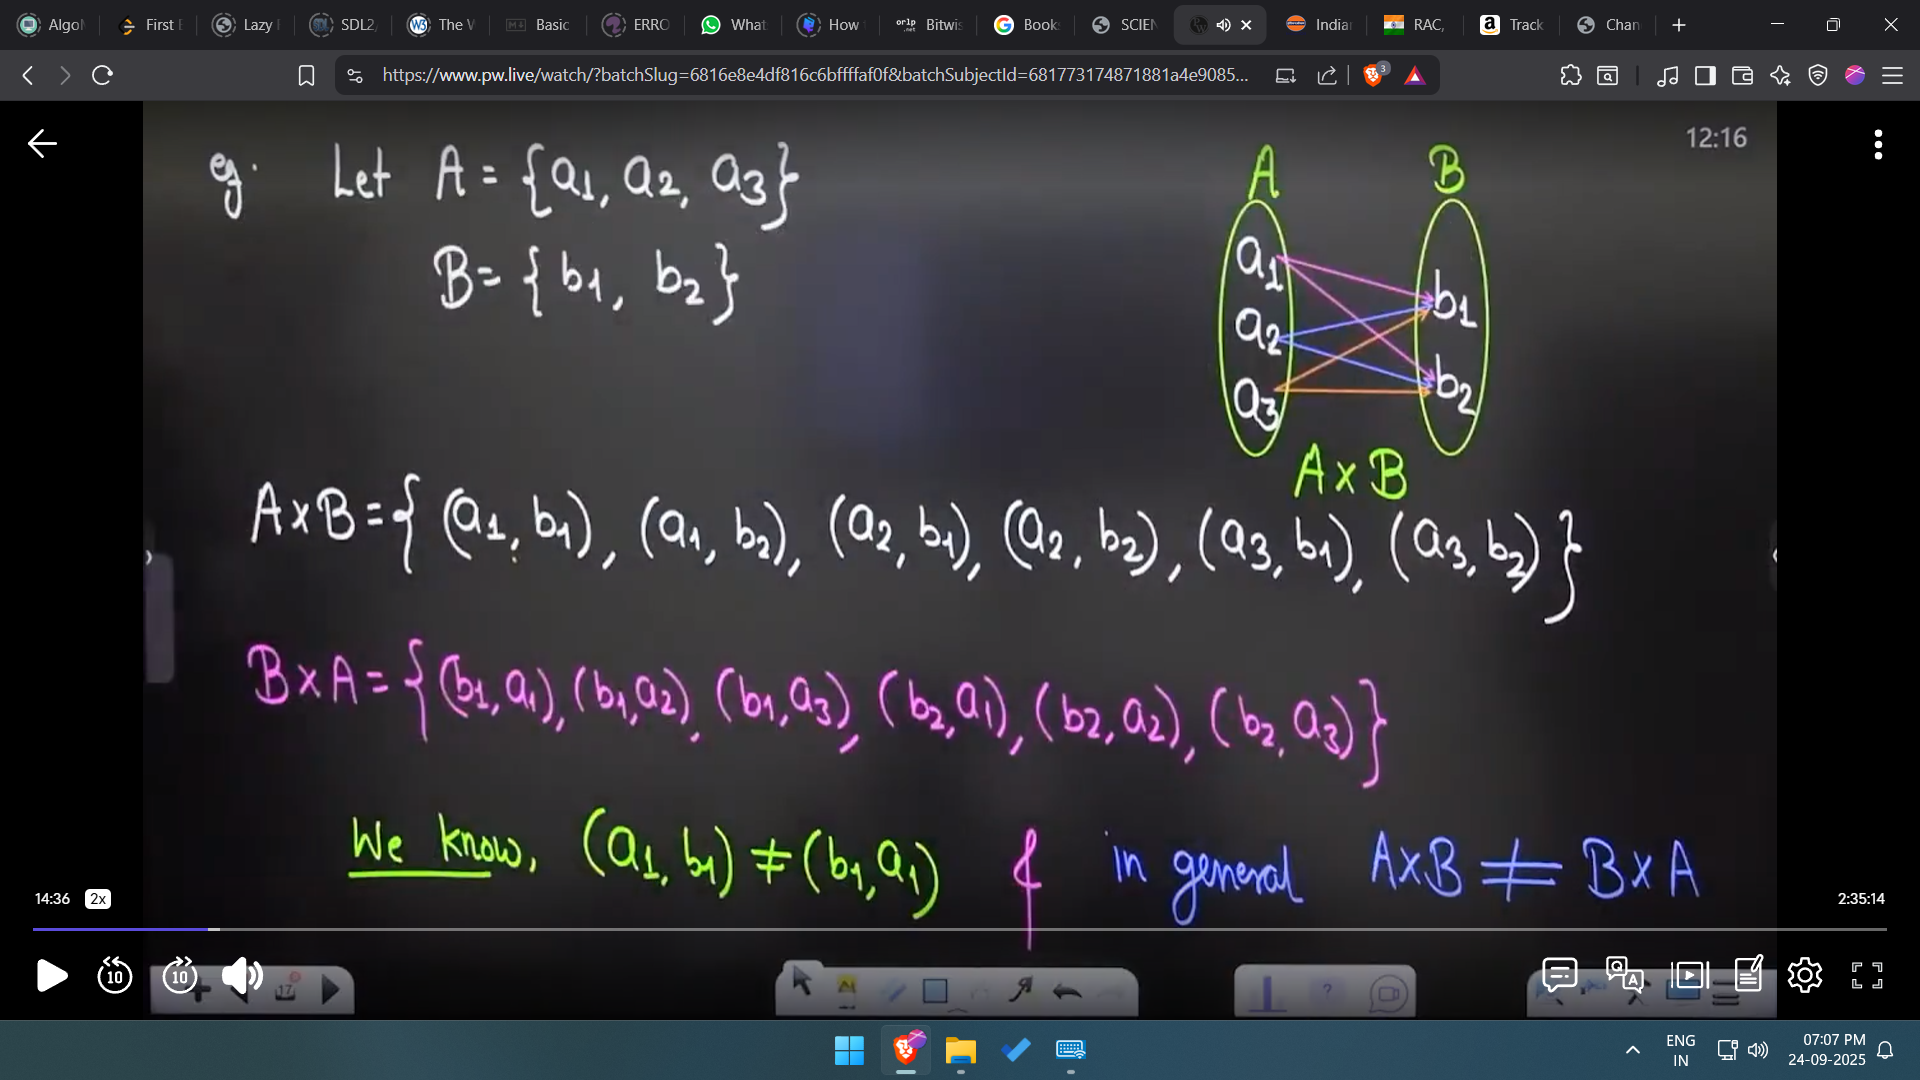 AlgoM
First E
Lazy I
SDL2,
The V
Basic
ERRO
What
How
Bitwis
Book
SCIEN
India
RAC,
Track
Chan
https://www.pw.live/watch/?batchSlug=6816e8e4df816c6bffffaf0f&batchSubjectId=681773174871881a4e9085...
3
12:16
eg. Let A = {a1, a2, a3}
B = {b1, b2}
A B
a1
a2
a3
b1
b2
A x B
A x B = { (a1, b1), (a1, b2), (a2, b1), (a2, b2), (a3, b1), (a3, b2) }
B x A = { (b1, a1), (b1, a2), (b1, a3), (b2, a1), (b2, a2), (b2, a3) }
We know, (a1, b1) ≠ (b1, a1) & in general A x B ≠ B x A
14:36 2x 2:35:14
10 10
17
ENG
IN
07:07 PM
24-09-2025